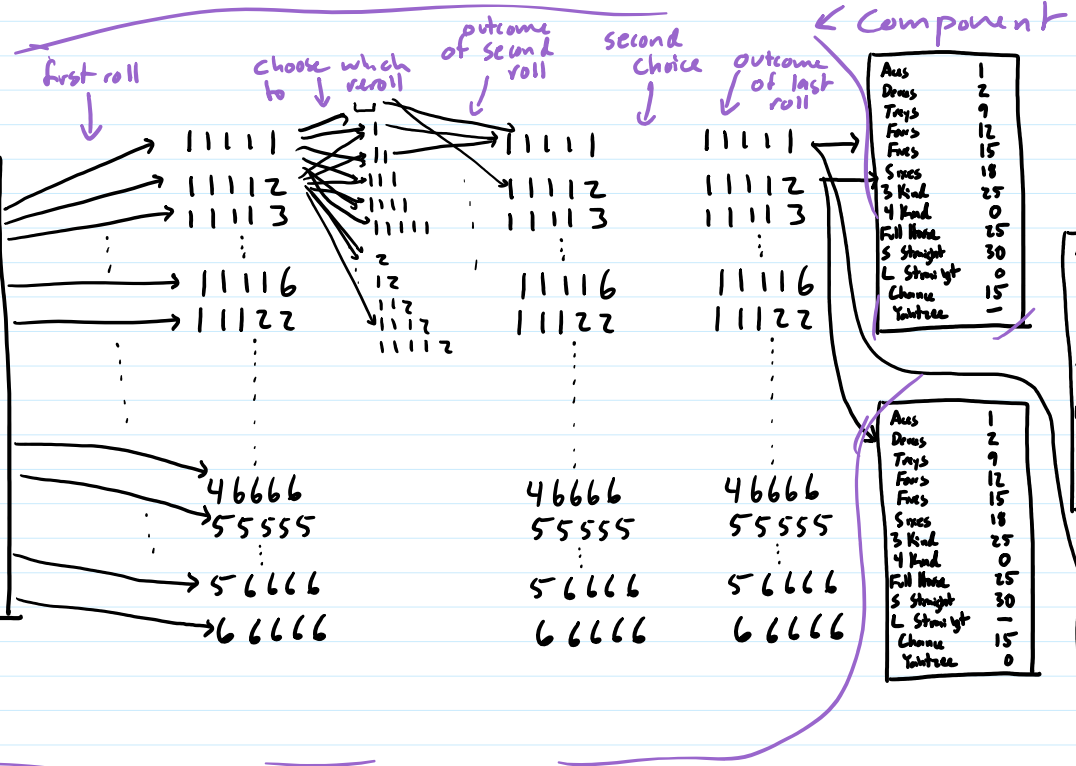 Component
first roll
choose which to reroll
outcome of second roll
second choice
outcome of last roll
1 1 1 1 1
1 1 1 1 2
1 1 1 1 3
1 1 1 1 6
1 1 1 2 2
4 6 6 6 6
5 5 5 5 5
5 6 6 6 6
6 6 6 6 6
1
1 1
1 1 1
1 1 1 1
1 1 1 1 1
2
1 2
1 1 2
1 1 1 2
1 1 1 1 2
1 1 1 1 1
1 1 1 1 2
1 1 1 1 3
1 1 1 1 6
1 1 1 2 2
4 6 6 6 6
5 5 5 5 5
5 6 6 6 6
6 6 6 6 6
1 1 1 1 1
1 1 1 1 2
1 1 1 1 3
1 1 1 1 6
1 1 1 2 2
4 6 6 6 6
5 5 5 5 5
5 6 6 6 6
6 6 6 6 6
Aces 1
Deuces 2
Treys 9
Fours 12
Fives 15
Sixes 18
3 Kind 25
4 Kind 0
Full House 25
S Straight 30
L Straight 0
Chance 15
Yahtzee —
Aces 1
Deuces 2
Treys 9
Fours 12
Fives 15
Sixes 18
3 Kind 25
4 Kind 0
Full House 25
S Straight 30
L Straight —
Chance 15
Yahtzee 0